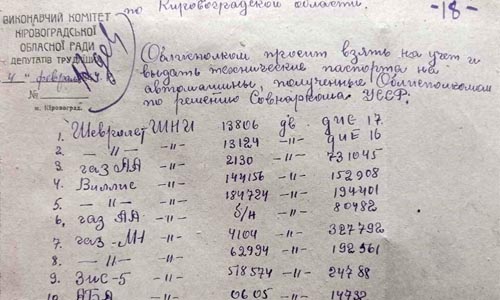 по Кировоградской области.
-18-
ВИКОНАВЧИЙ КОМІТЕТ
КІРОВОГРАДСЬКОЇ
ОБЛАСНОЇ РАДИ
ДЕПУТАТІВ ТРУДЯЩИХ
"4" февраля
№
м. Кіровоград.
Облисполком просит взять на учет и
выдать технические паспорта на
автомашины, полученные Облисполкомом
по решению Совнаркома УССР.
1. Шевролет ШНИ 13806 дв ДИЕ 17
2. —"— -"- 13124 -"- ДИЕ 16
3. газ АА -"- 2130 -"- 731045
4. Виллис -"- 144156 -"- 152908
5. —"— -"- 184724 -"- 194401
6. газ АА -"- б/н -"- 80482
7. газ-МН -"- 4104 -"- 327792
8. —"— -"- 62994 -"- 192561
9. Зис-5 -"- 518574 -"- 24788
10. -"- 0605 -"- 14732